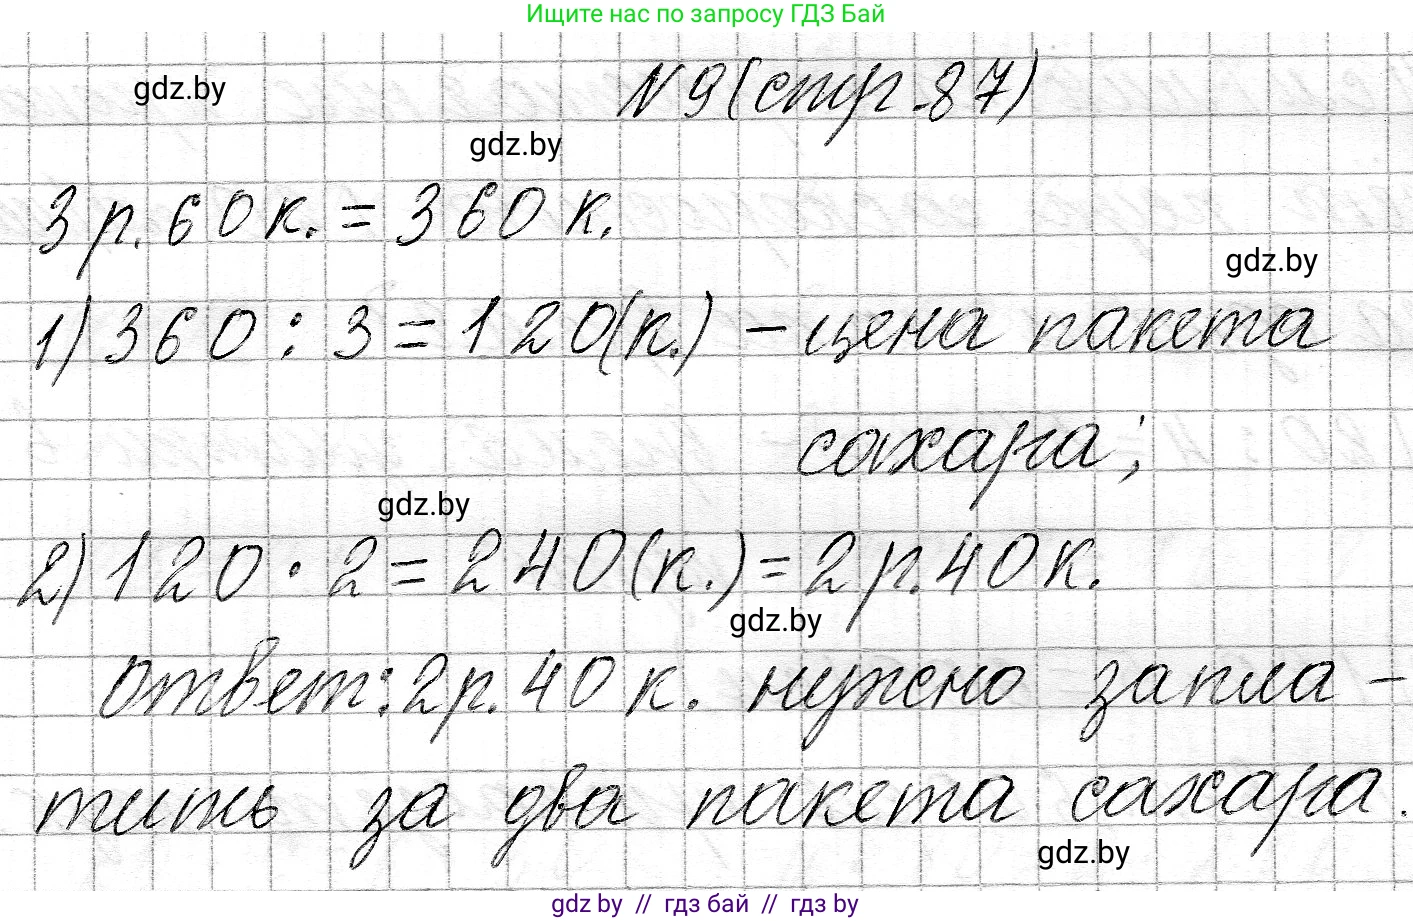 Ищите нас по запросу ГДЗ Бай
N 9 (стр. 87)
gdz.by
gdz.by
3 р. 60 к. = 360 к.
gdz.by
1) 360 : 3 = 120 (к.) – цена пакета
сахара;
gdz.by
2) 120 · 2 = 240 (к.) = 2 р. 40 к.
gdz.by
ответ: 2 р. 40 к. нужно запла-
тить за два пакета сахара.
gdz.by
gdz by // гдз бай // гдз by